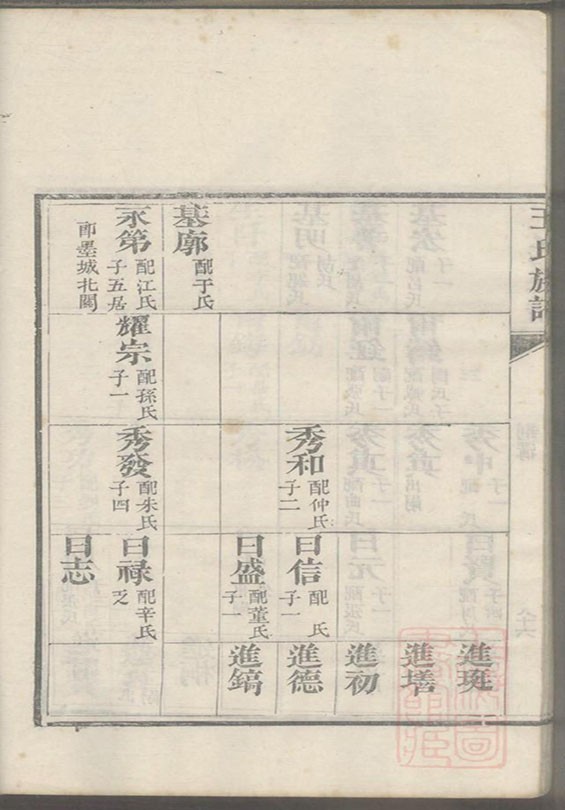 王氏族譜
基廓 配于氏
永第 配江氏 子五居
即墨城北關
耀宗 配孫氏 子一
秀和 配仲氏 子二
秀發 配朱氏 子四
曰信 配 氏 子一
曰盛 配董氏 子一
曰禄 配辛氏 乏
曰志
進斑
進墡
進初
進德
進鎬